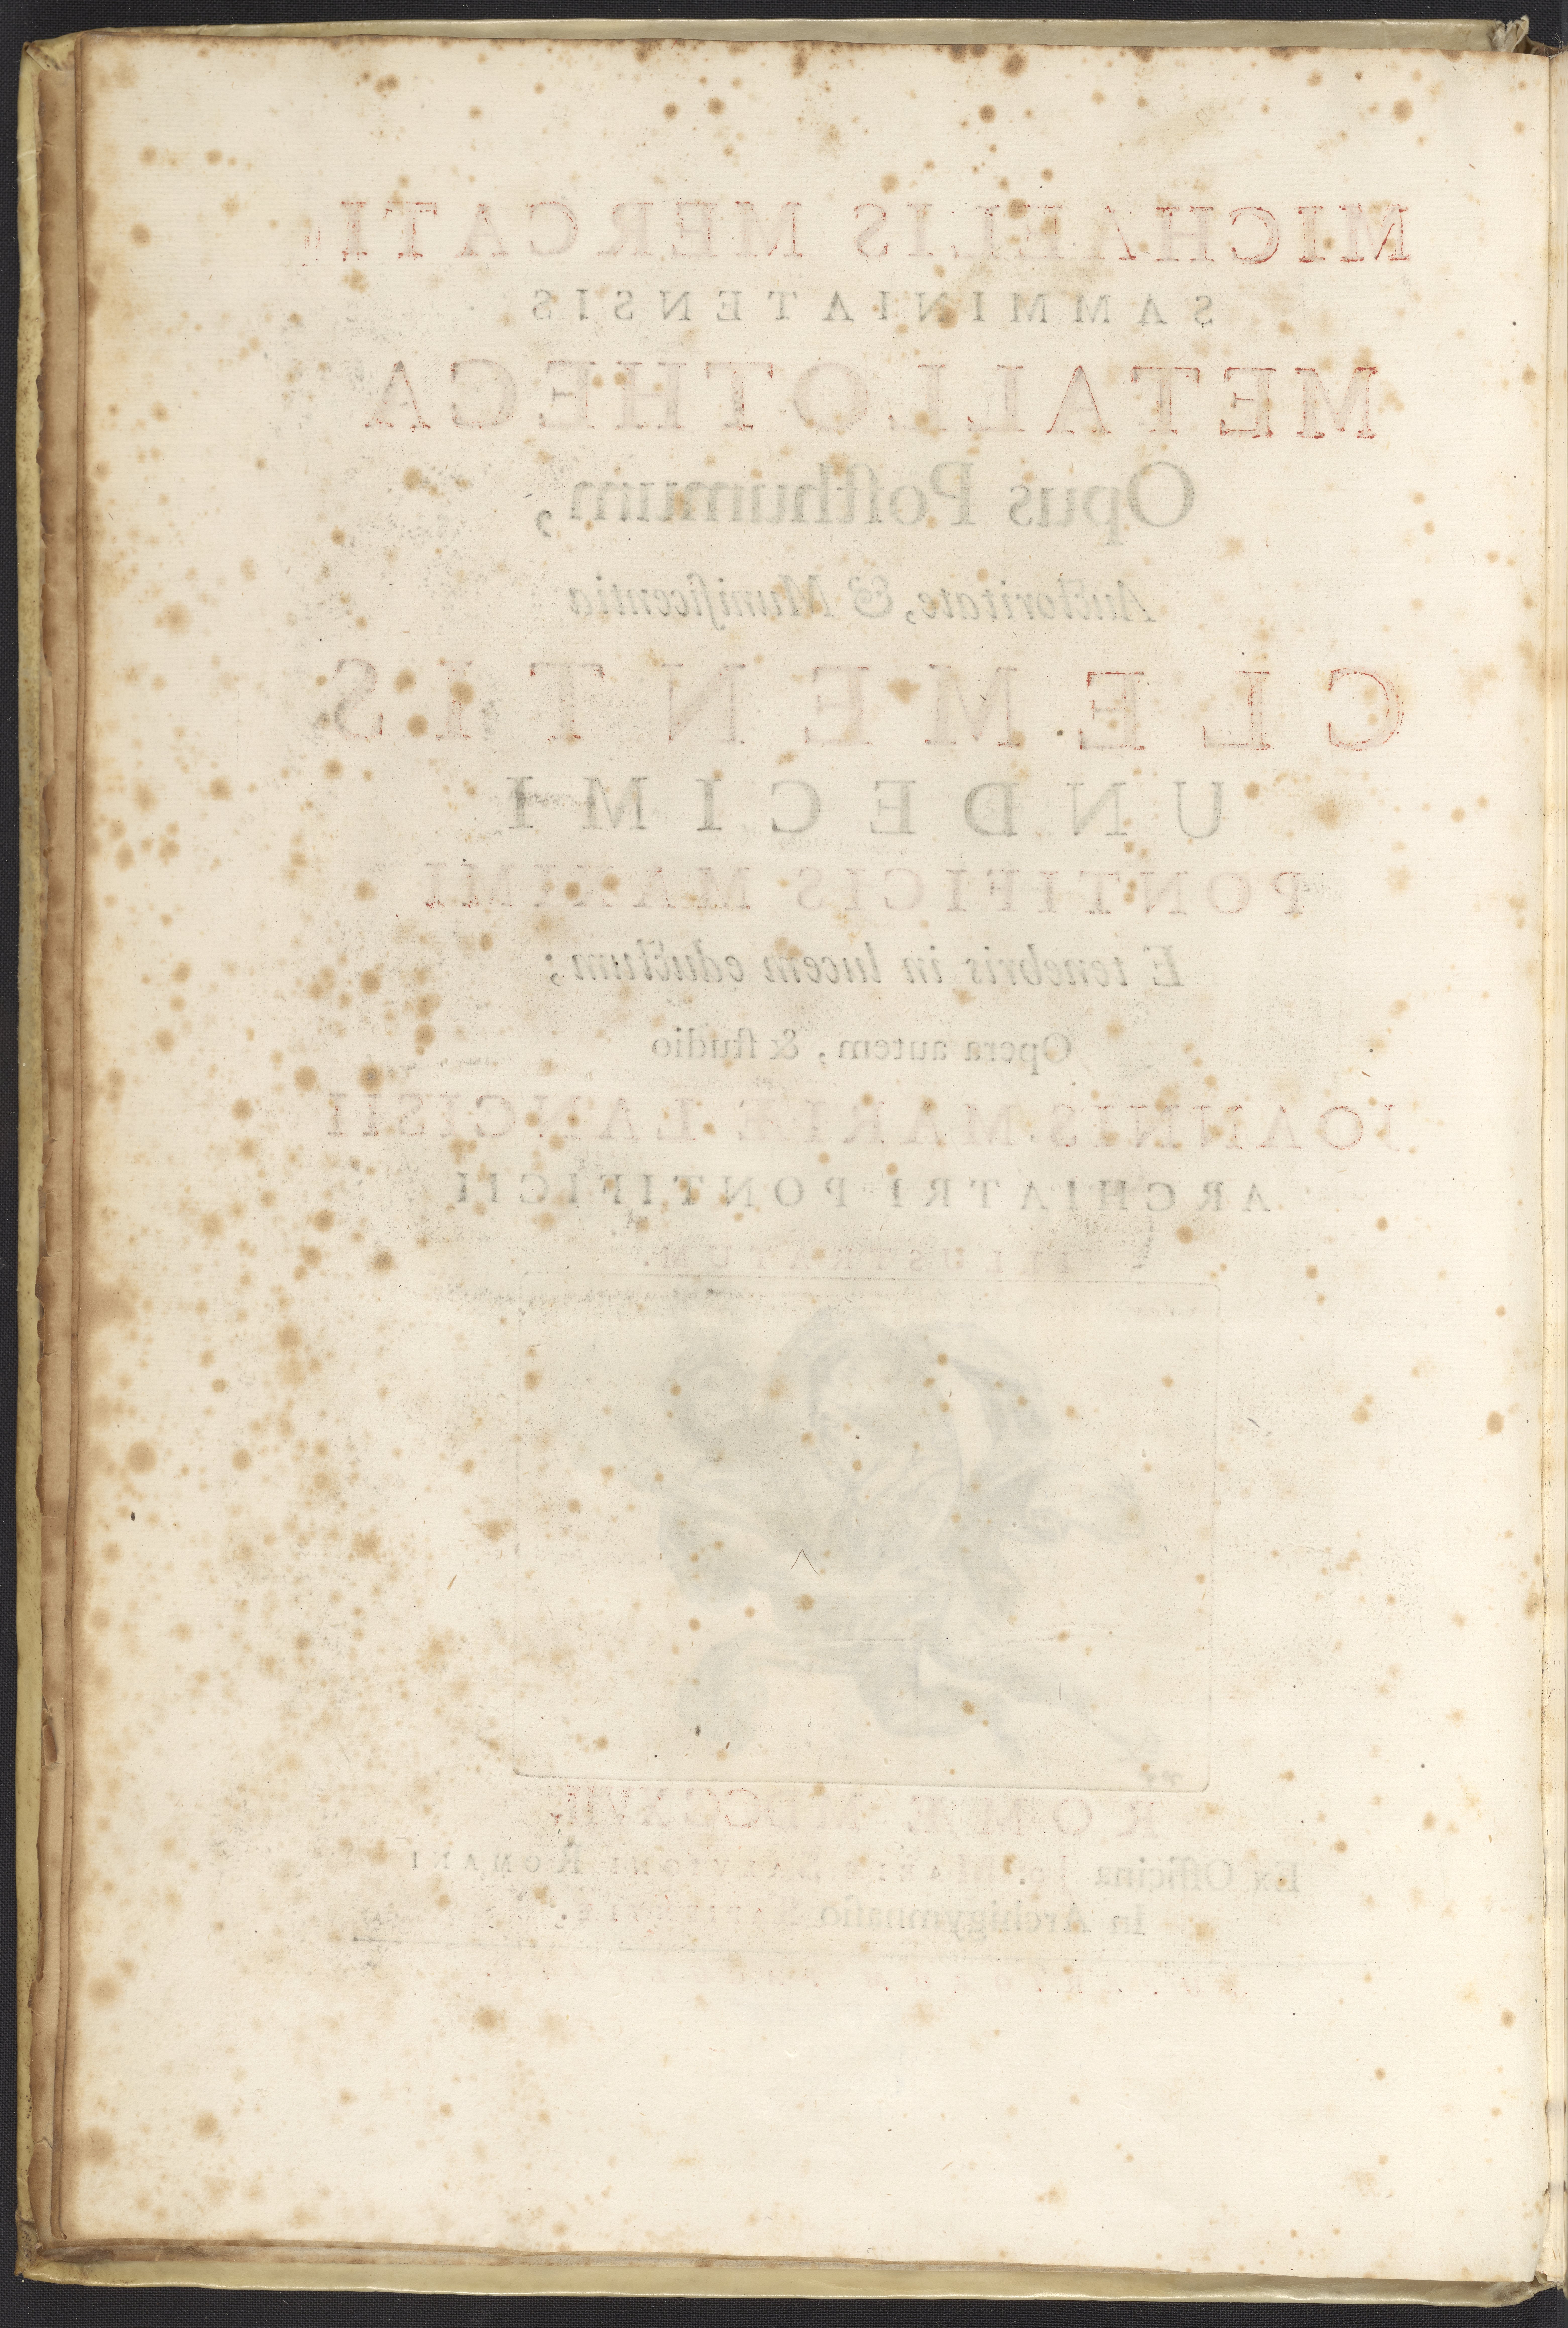 MICHAELIS MERCATI
SAMMINIATENSIS
METALLOTHECA
Opus Poſthumum,
Auctoritate, & Munificentia
CLEMENTIS
UNDECIMI
PONTIFICIS MAXIMI
E tenebris in lucem eductum;
Opera autem, & ſtudio
JOANNIS MARIÆ LANCISII
ARCHIATRI PONTIFICII
ILLUSTRATUM.
ROMÆ MDCCXVII
Ex Officina Jo: MARIÆ SALVIONI ROMANI
In Archigymnaſio SAPIENTIÆ.